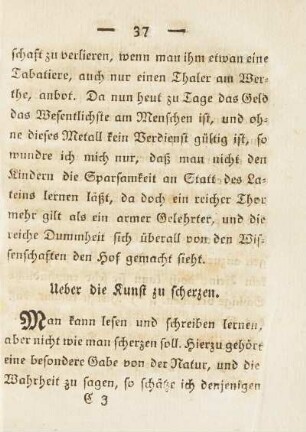 — 37 —
schaft zu verlieren, wenn man ihm etwan eine
Tabatiere, auch nur einen Thaler am Wer-
the, anbot. Da nun heut zu Tage das Geld
das Wesentlichste am Menschen ist, und oh-
ne dieses Metall kein Verdienst gültig ist, so
wundre ich mich nur, daß man nicht den
Kindern die Sparsamkeit an Statt des La-
teins lernen läßt, da doch ein reicher Thor
mehr gilt als ein armer Gelehrter, und die
reiche Dummheit sich überall von den Wis-
senschaften den Hof gemacht sieht.
Ueber die Kunst zu scherzen.
Man kann lesen und schreiben lernen,
aber nicht wie man scherzen soll. Hierzu gehört
eine besondere Gabe von der Natur, und die
Wahrheit zu sagen, so schätze ich denjenigen
C 3